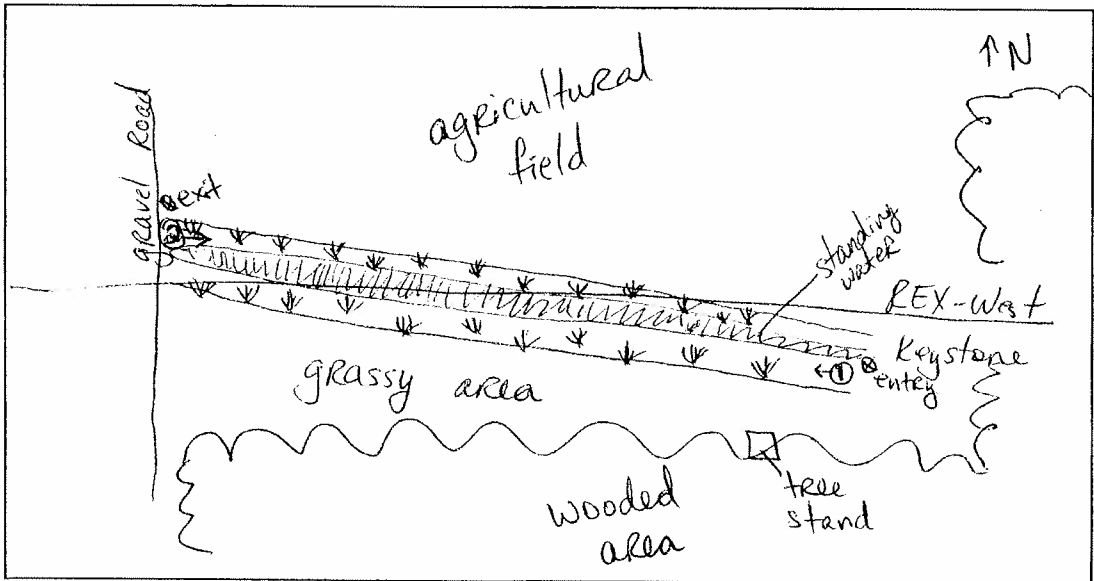 ↑N
agricultural
field
gravel Road
exit
2
standing
water
REX-West
Keystone
1
entry
grassy area
tree
stand
wooded
area